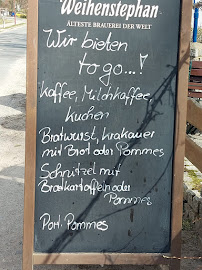 Weihenstephan
ÄLTESTE BRAUEREI DER WELT
Wir bieten
to go...!
Kaffee, Milchkaffee,
Kuchen
Bratwurst, Krakauer
mit Brot oder Pommes
Schnitzel mit
Bratkartoffeln oder
Pommes
Port. Pommes